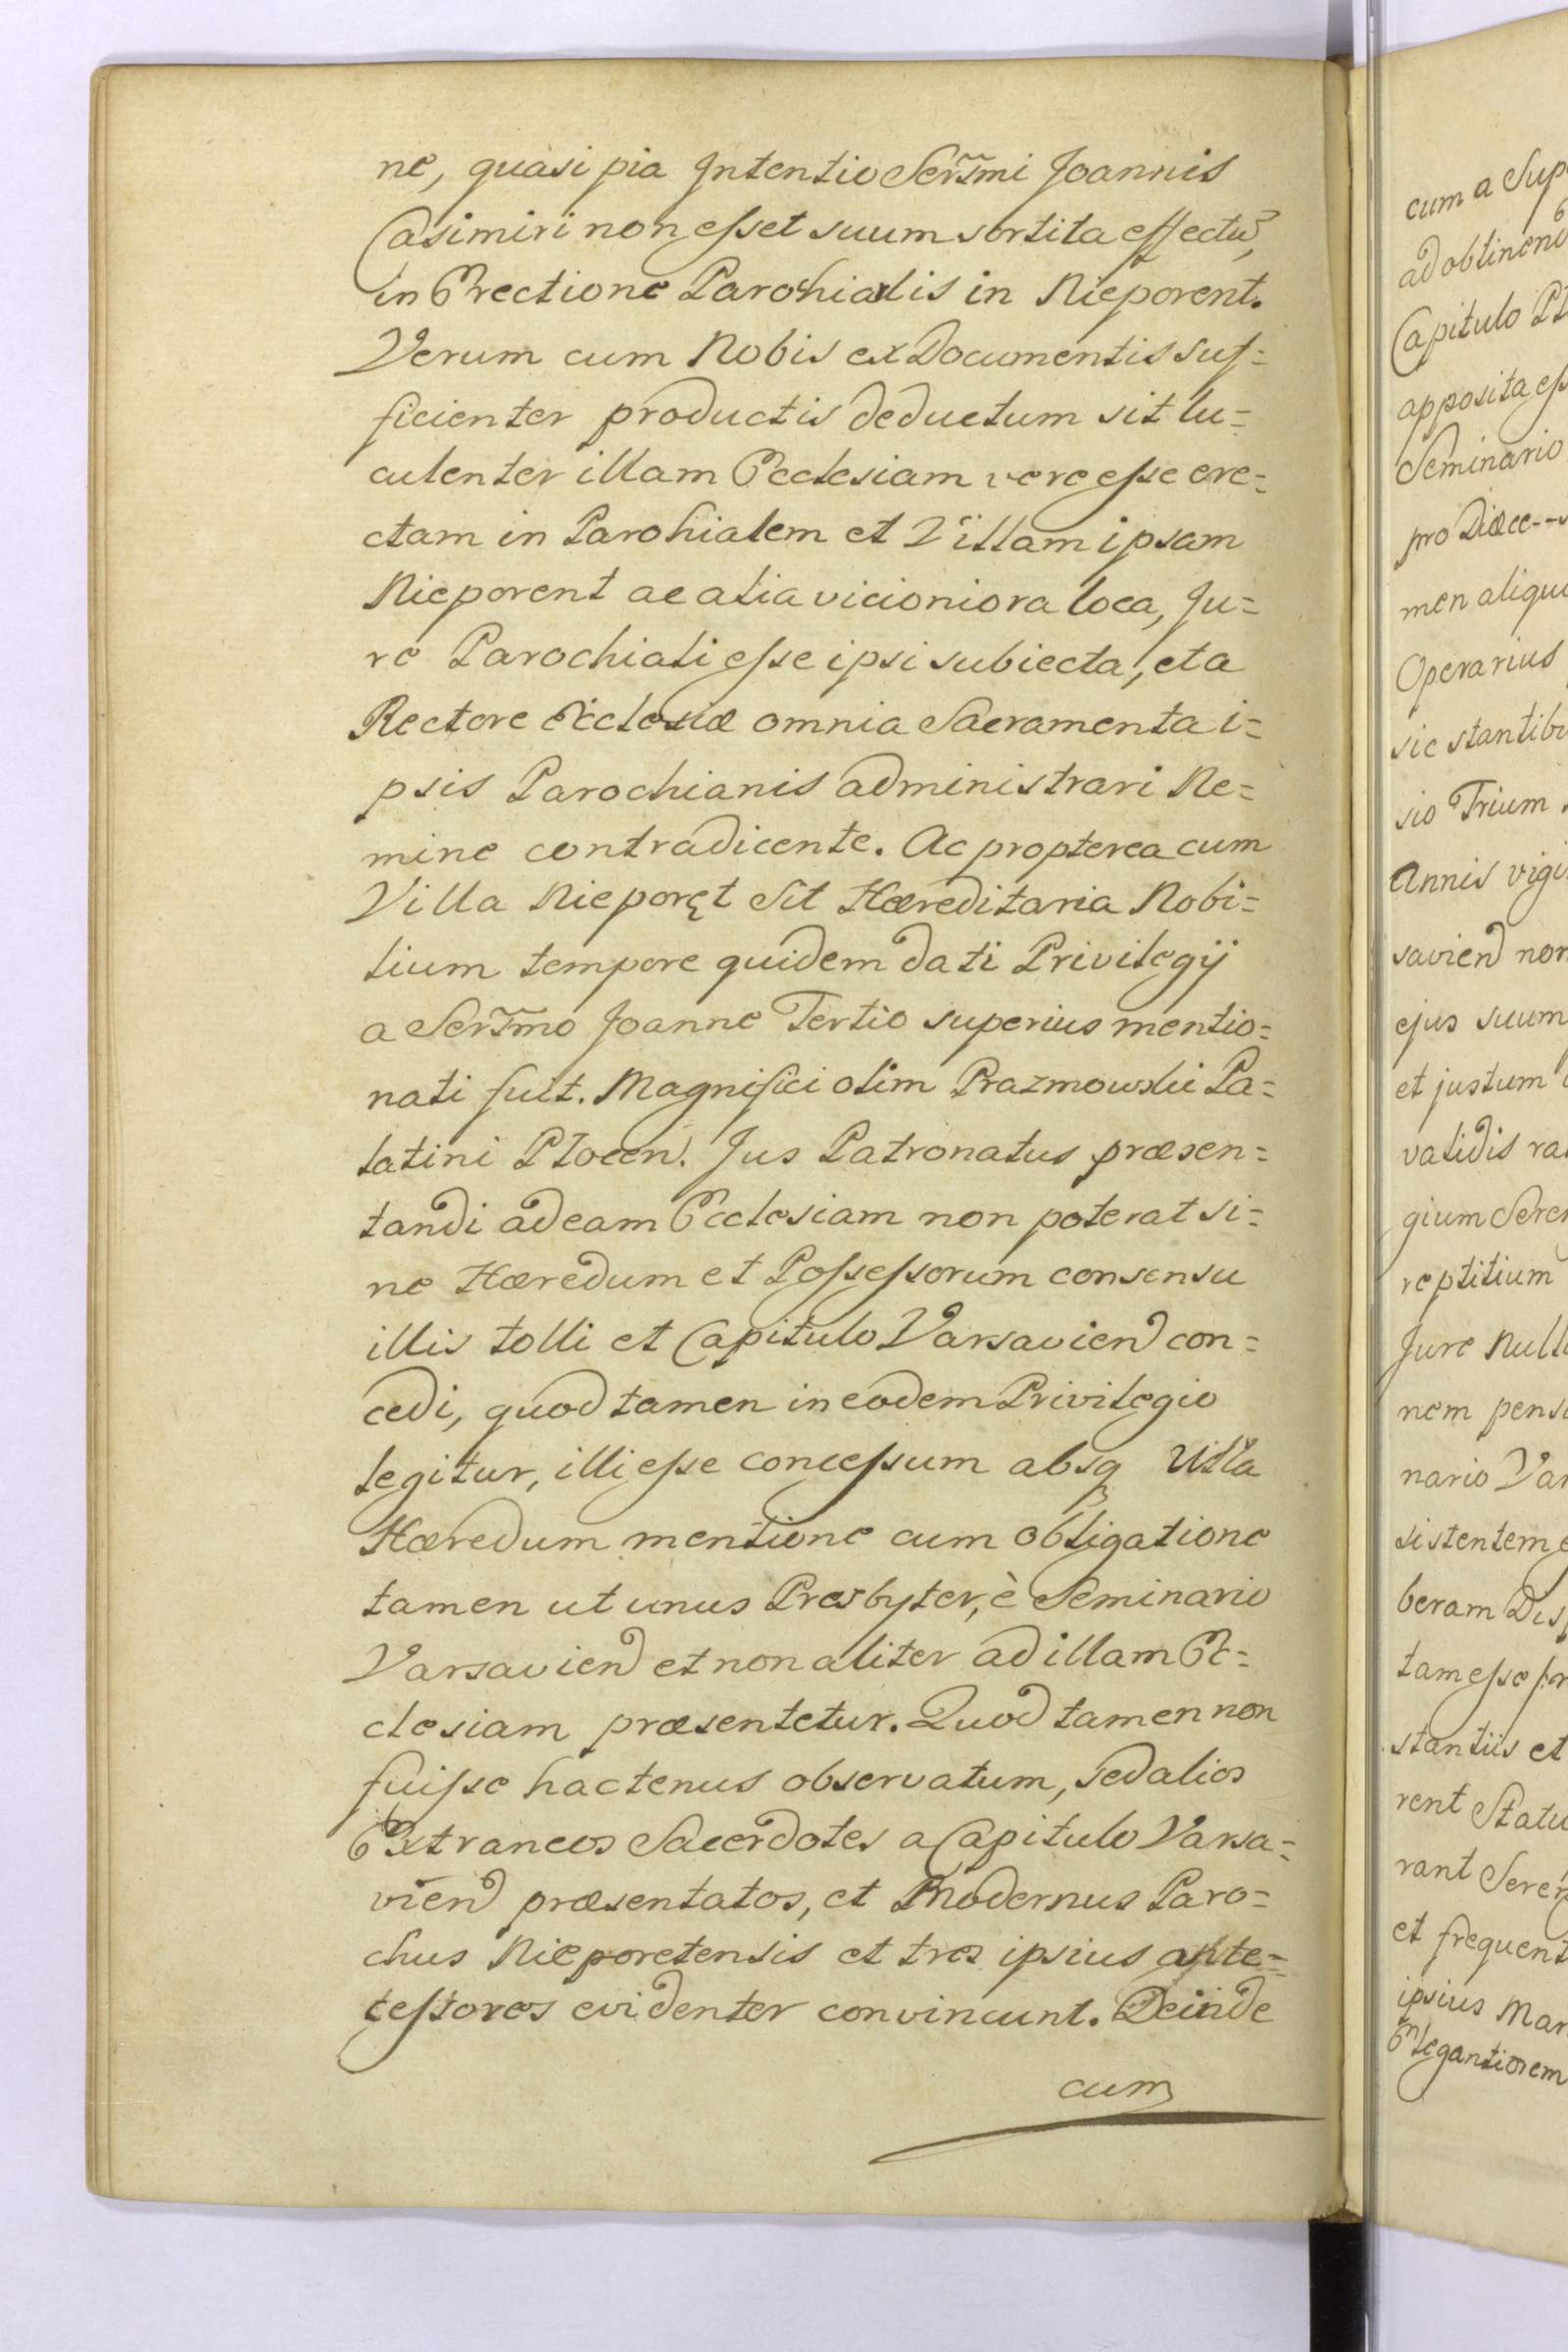 ne, quasi pia Intentio Serm̃i Joannis
Casimiri non esset suum sortita effectũ,
in Erectione Parochialis in Nieporent.
Verum cum Nobis ex Documentis suf=
ficienter productis deductum sit lu=
culenter illam Ecclesiam vere esse ere=
ctam in Parohialem et Villam ipsam
Nieporent ac alia vicioniora loca, Ju=
re Parochiali esse ipsi subiecta, et a
Rectore Ecclesiæ omnia Sacramenta i=
psis Parochianis administrari Ne=
mine contradicente. Ac propterea cum
Villa Nieporęt Sit Hæreditaria Nobi=
lium tempore quidem dati Privilegij
a Serm̃o Joanne Tertio superius mentio=
nati fuit. Magnifici olim Prazmowski Pa=
latini Płocen. Jus Patronatus præsen=
tandi ad eam Ecclesiam non poterat si=
ne Hæredum et Possessorum consensu
illis tolli et Capitulo Varsavien con=
cedi, quod tamen in eodem Privilegio
legitur, illi esse concessum absq Ulla
Hæredum mentione cum obligatione
tamen ut unus Presbyter, è Seminario
Varsavien et non aliter ad illam Ec=
clesiam præsentetur. Quod tamen non
fuisse hactenus observatum, sed alios
Extraneos Sacerdotes a Capitulo Varsa=
vien præsentatos, et Modernus Paro=
chus Nieporetensis et tres ipsius ante=
cessores evidenter convincunt. Deinde
cum
cum a Sup
ad obtinen
Capitulo Pł
apposita es
Seminario
pro Diæce--
men aliqu
Operarius
sic stantib
sio Trium
Annis vigi
savien non
ejus suum
et justum
validis ra
gium Seren
reptitium
Jure Null
nem pens
nario Var
sistentem
beram Dis
tam esse pr
stantiis et
rent Statu
rant Seren
et frequent
ipsius Mar
Elegantiorem